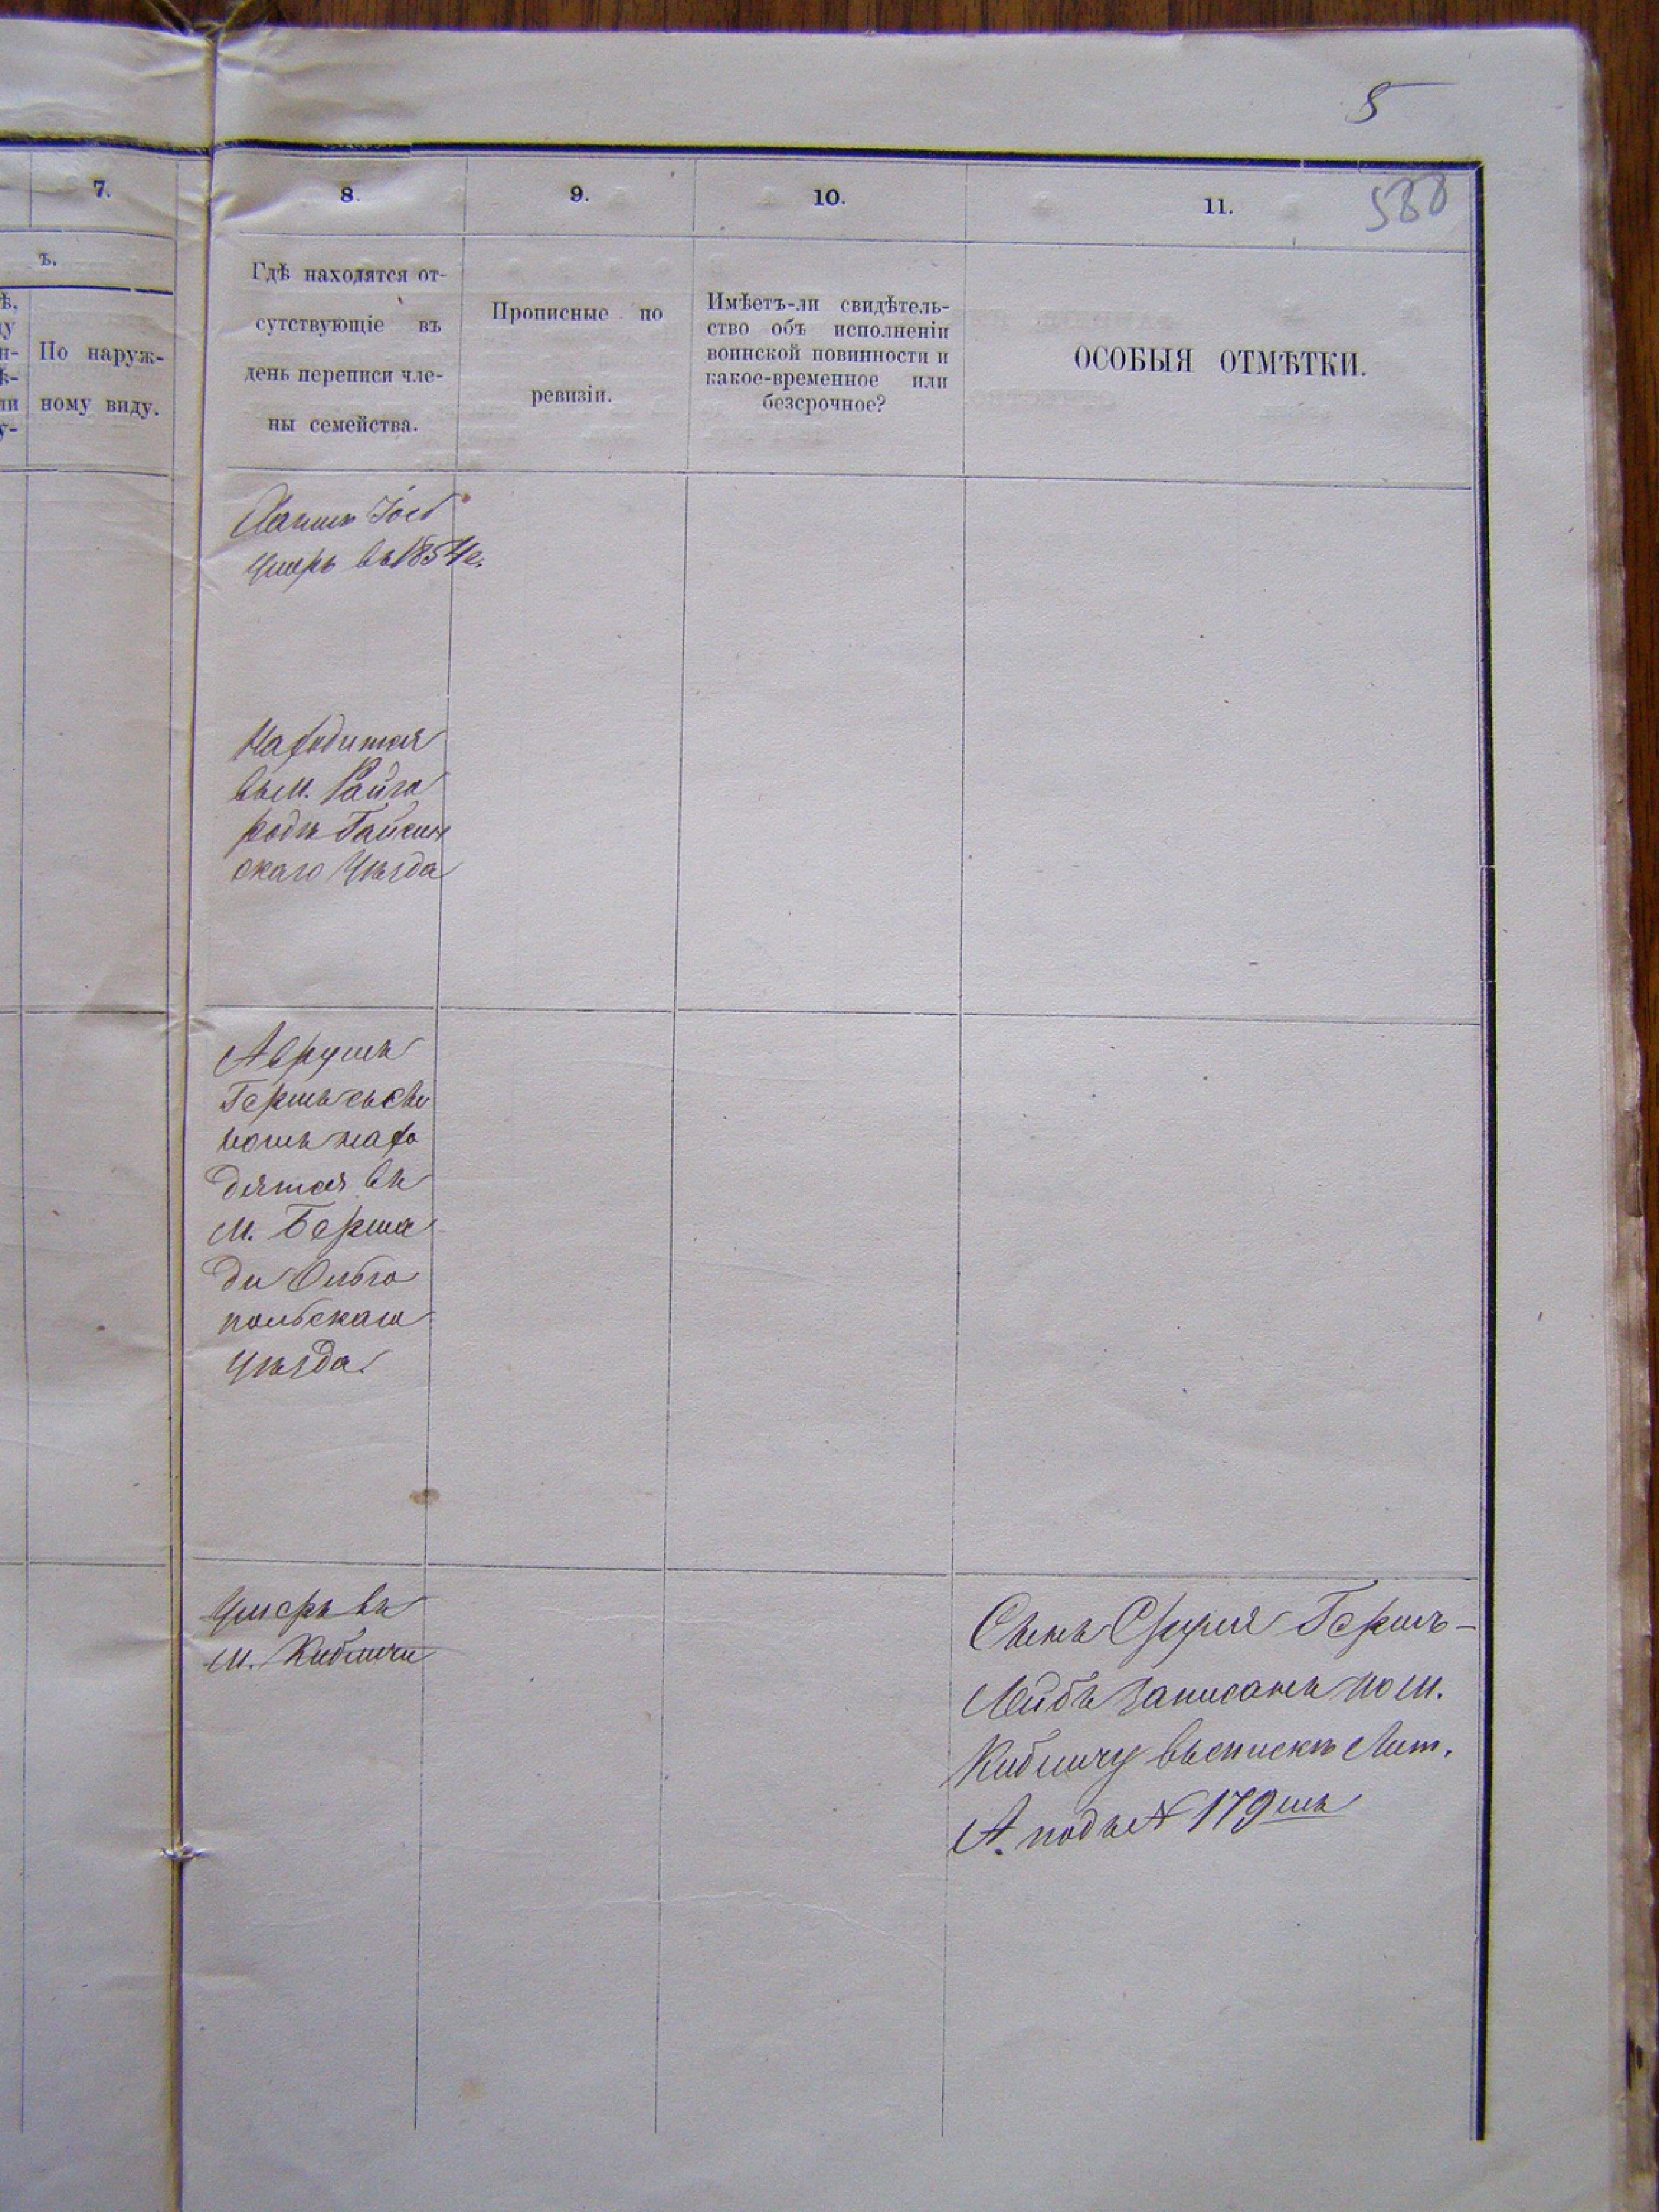 5
588
7.
8.
9.
10.
11.
ъ.
По наруж-
ному виду.
Гдѣ находятся от-
сутствующіе въ
день переписи чле-
ны семейства.
Прописные по
ревизіи.
Имѣетъ-ли свидѣтель-
ство объ исполненіи
воинской повинности и
какое-временное или
безсрочное?
ОСОБЫЯ ОТМѢТКИ.
умеръ въ 1854 г.
Находится
въ м. Райго
родѣ Гайсин
скаго Уѣзда
Аврумъ
Гершъ съ сы
номъ нахо
дятся въ
м. Берша
ди Ольго
польскаго
Уѣзда
Умеръ въ
м. Кибличи
Сынъ Сруля Гершъ-
Лейбъ записанъ по м.
Кибличу въ спискѣ Лит.
А. подъ № 179мъ